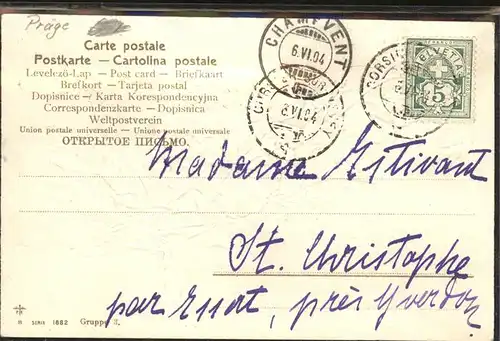 Präge
Carte postale
Postkarte — Cartolina postale
Levelező-Lap — Post card — Briefkaart
Brefkort — Tarjeta postal
Dopisnice — Karta Korespondencyjna
Correspondenzkarte — Dopisnica
Weltpostverein
Union postale universelle — Unione postale universale
ОТКРЫТОЕ ПИСЬМО.
CHAMPVENT
6.VI.04
6.VI.04
CORSIER
HELVETIA
5
Madame Estivant
St. Christophe
par Essert, près Yverdon
III SERIE 1882 Gruppe 3.